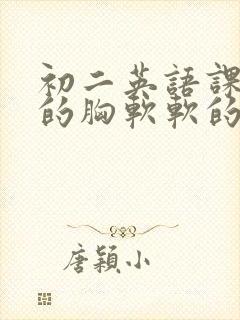 初二英語課
的胸軟軟的
唐穎小